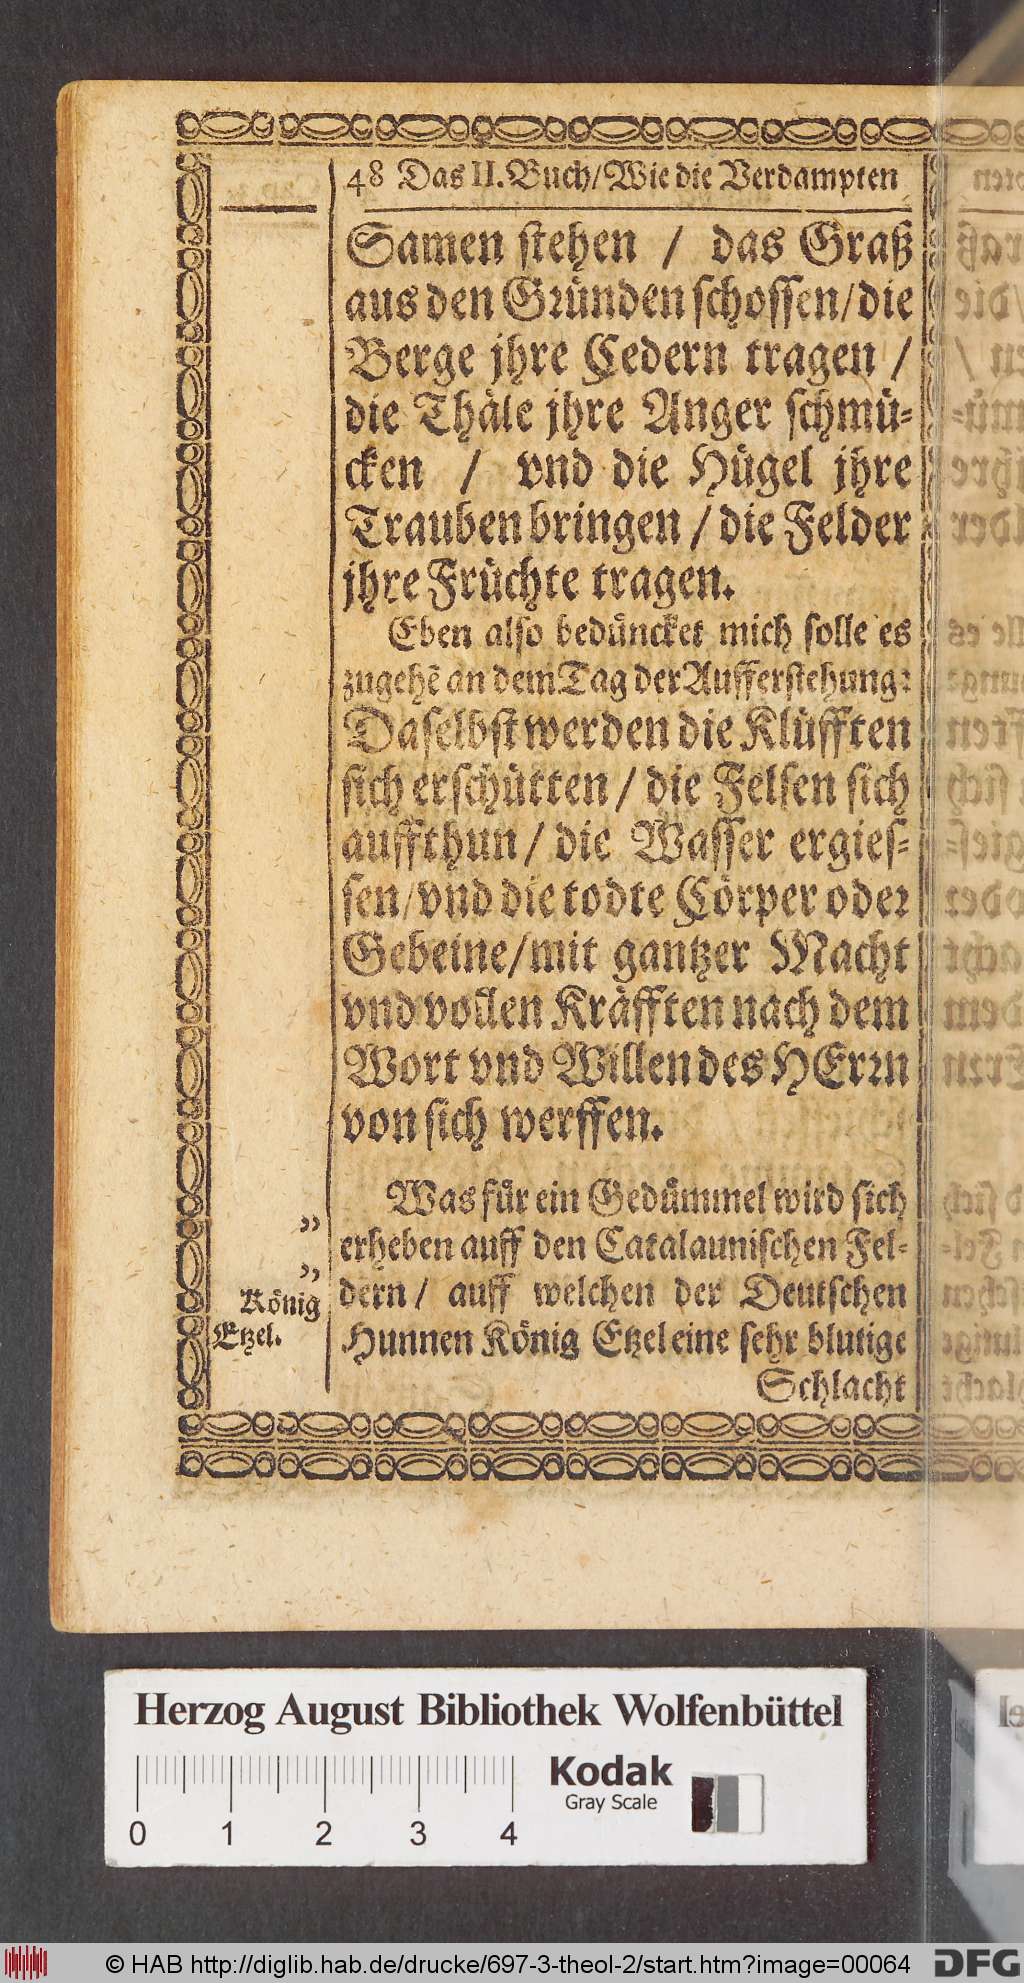 48 Das II. Buch/ Wie die Verdampten
Samen stehen / das Graß
aus den Gründen schossen/die
Berge jhre Cedern tragen /
die Thäle jhre Anger schmü-
cken / vnd die Hügel jhre
Trauben bringen / die Felder
jhre Früchte tragen.
Eben also bedüncket mich solle es
zugehē an dem Tag der Aufferstehung:
Daselbst werden die Klüfften
sich erschütten / die Felsen sich
auffthun / die Wasser ergies-
sen/vnd die todte Cörper oder
Gebeine/mit gantzer Macht
vnd vollen Kräfften nach dem
Wort vnd Willen des HErrn
von sich werffen.
Was für ein Gedümmel wird sich
„ erheben auff den Catalaunischen Fel-
„ dern / auff welchen der Deutschen
König
Etzel.
Hunnen König Etzel eine sehr blutige
Schlacht
Herzog August Bibliothek Wolfenbüttel
Kodak
Gray Scale
0 1 2 3 4
© HAB http://diglib.hab.de/drucke/697-3-theol-2/start.htm?image=00064
DFG